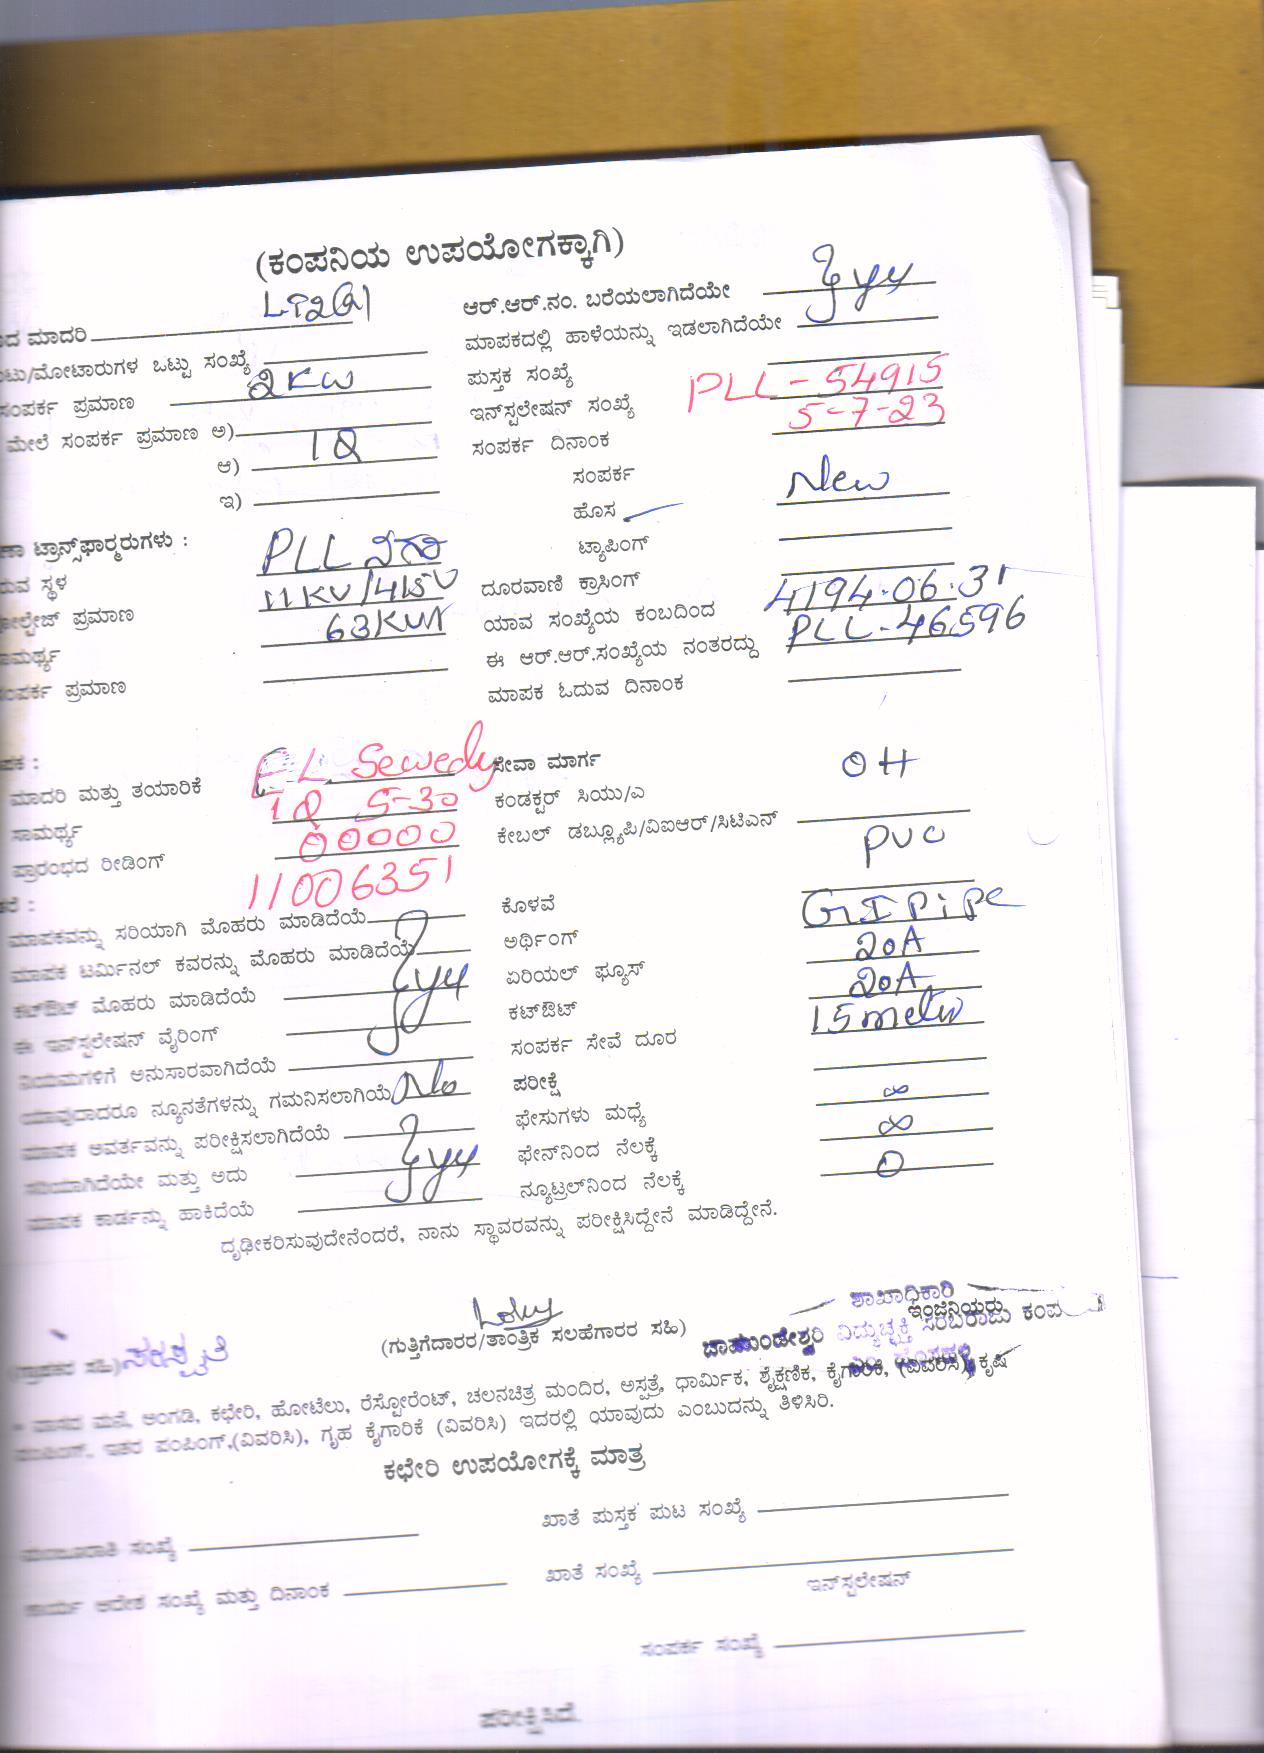 (ಕಂಪನಿಯ ಉಪಯೋಗಕ್ಕಾಗಿ)
ಮಾದರಿ LT2(a)
ಆರ್.ಆರ್.ನಂ. ಬರೆಯಲಾಗಿದೆಯೇ
ಮಾಪಕದಲ್ಲಿ ಹಾಳೆಯನ್ನು ಇಡಲಾಗಿದೆಯೇ
/ಮೋಟಾರುಗಳ ಒಟ್ಟು ಸಂಖ್ಯೆ
ಪುಸ್ತಕ ಸಂಖ್ಯೆ
ಸಂಪರ್ಕ ಪ್ರಮಾಣ 2KW
ಇನ್‌ಸ್ಟಲೇಷನ್ ಸಂಖ್ಯೆ PLL - 54915
ಮೇಲೆ ಸಂಪರ್ಕ ಪ್ರಮಾಣ ಅ)
ಸಂಪರ್ಕ ದಿನಾಂಕ 5-7-23
ಆ)
ಸಂಪರ್ಕ
ಇ)
ಹೊಸ New
ಟ್ರಾನ್ಸ್‌ಫಾರ್ಮರುಗಳು :
ಟ್ಯಾಪಿಂಗ್
ಸ್ಥಳ PLL
ದೂರವಾಣಿ ಕ್ರಾಸಿಂಗ್
ಪ್ರಮಾಣ 11KV/415V
ಯಾವ ಸಂಖ್ಯೆಯ ಕಂಬದಿಂದ 4194.06.31
63KVA
ಈ ಆರ್.ಆರ್.ಸಂಖ್ಯೆಯ ನಂತರದ್ದು PLL - 46596
ಪ್ರಮಾಣ
ಮಾಪಕ ಓದುವ ದಿನಾಂಕ
ಮಾದರಿ ಮತ್ತು ತಯಾರಿಕೆ EL Sewedy
ಸೇವಾ ಮಾರ್ಗ OH
ಸಾಮರ್ಥ್ಯ 5-30
ಕಂಡಕ್ಟರ್ ಸಿಯು/ಎ
ಪ್ರಾರಂಭದ ರೀಡಿಂಗ್ 00000
ಕೇಬಲ್ ಡಬ್ಲ್ಯೂಪಿ/ವಿಐಆರ್/ಸಿಟಿಎನ್ PVC
11006351
ಮಾಪಕವನ್ನು ಸರಿಯಾಗಿ ಮೊಹರು ಮಾಡಿದೆಯೆ
ಕೊಳವೆ GI Pipe
ಮಾಪಕ ಟರ್ಮಿನಲ್ ಕವರನ್ನು ಮೊಹರು ಮಾಡಿದೆಯೆ
ಅರ್ಥಿಂಗ್ 20A
ಕಟ್‌ಔಟ್ ಮೊಹರು ಮಾಡಿದೆಯೆ
ಏರಿಯಲ್ ಫ್ಯೂಸ್ 20A
ಈ ಇನ್‌ಸ್ಟಲೇಷನ್ ವೈರಿಂಗ್
ಕಟ್‌ಔಟ್ 15 meter
ನಿಯಮಗಳಿಗೆ ಅನುಸಾರವಾಗಿದೆಯೆ
ಸಂಪರ್ಕ ಸೇವೆ ದೂರ
ಯಾವುದಾದರೂ ನ್ಯೂನತೆಗಳನ್ನು ಗಮನಿಸಲಾಗಿಯೆ No
ಪರೀಕ್ಷೆ
ಮಾಪಕ ಆವರ್ತವನ್ನು ಪರೀಕ್ಷಿಸಲಾಗಿದೆಯೆ
ಫೇಸುಗಳು ಮಧ್ಯೆ ∞
ಸರಿಯಾಗಿದೆಯೇ ಮತ್ತು ಅದು
ಫೇನ್‌ನಿಂದ ನೆಲಕ್ಕೆ ∞
ಮಾಪಕ ಕಾರ್ಡನ್ನು ಹಾಕಿದೆಯೆ
ನ್ಯೂಟ್ರಲ್‌ನಿಂದ ನೆಲಕ್ಕೆ 0
ದೃಢೀಕರಿಸುವುದೇನೆಂದರೆ, ನಾನು ಸ್ಥಾವರವನ್ನು ಪರೀಕ್ಷಿಸಿದ್ದೇನೆ ಮಾಡಿದ್ದೇನೆ.
ಶಾಖಾಧಿಕಾರಿ
ಇಂಜಿನಿಯರು
(ಗ್ರಾಹಕರ ಸಹಿ) ಸರಸ್ವತಿ
(ಗುತ್ತಿಗೆದಾರರ/ತಾಂತ್ರಿಕ ಸಲಹೆಗಾರರ ಸಹಿ)
ಚಾಮುಂಡೇಶ್ವರಿ ವಿದ್ಯುಚ್ಛಕ್ತಿ ಸರಬರಾಜು ಕಂಪ
* ವಾಸದ ಮನೆ, ಅಂಗಡಿ, ಕಛೇರಿ, ಹೋಟೆಲು, ರೆಸ್ಟೋರೆಂಟ್, ಚಲನಚಿತ್ರ ಮಂದಿರ, ಅಸ್ಪತ್ರೆ, ಧಾರ್ಮಿಕ, ಶೈಕ್ಷಣಿಕ, ಕೈಗಾರಿಕೆ, (ವಿವರಿಸಿ), ಕೃಷಿ
ಇತರ ಪಂಪಿಂಗ್,(ವಿವರಿಸಿ), ಗೃಹ ಕೈಗಾರಿಕೆ (ವಿವರಿಸಿ) ಇದರಲ್ಲಿ ಯಾವುದು ಎಂಬುದನ್ನು ತಿಳಿಸಿರಿ.
ಕಛೇರಿ ಉಪಯೋಗಕ್ಕೆ ಮಾತ್ರ
ಮಂಜೂರಾತಿ ಸಂಖ್ಯೆ
ಖಾತೆ ಪುಸ್ತಕ ಪುಟ ಸಂಖ್ಯೆ
ಕಾರ್ಯ ಆದೇಶ ಸಂಖ್ಯೆ ಮತ್ತು ದಿನಾಂಕ
ಖಾತೆ ಸಂಖ್ಯೆ
ಇನ್‌ಸ್ಟಲೇಷನ್
ಸಂಪರ್ಕ ಸಂಖ್ಯೆ
ಪರೀಕ್ಷಿಸಿದೆ.